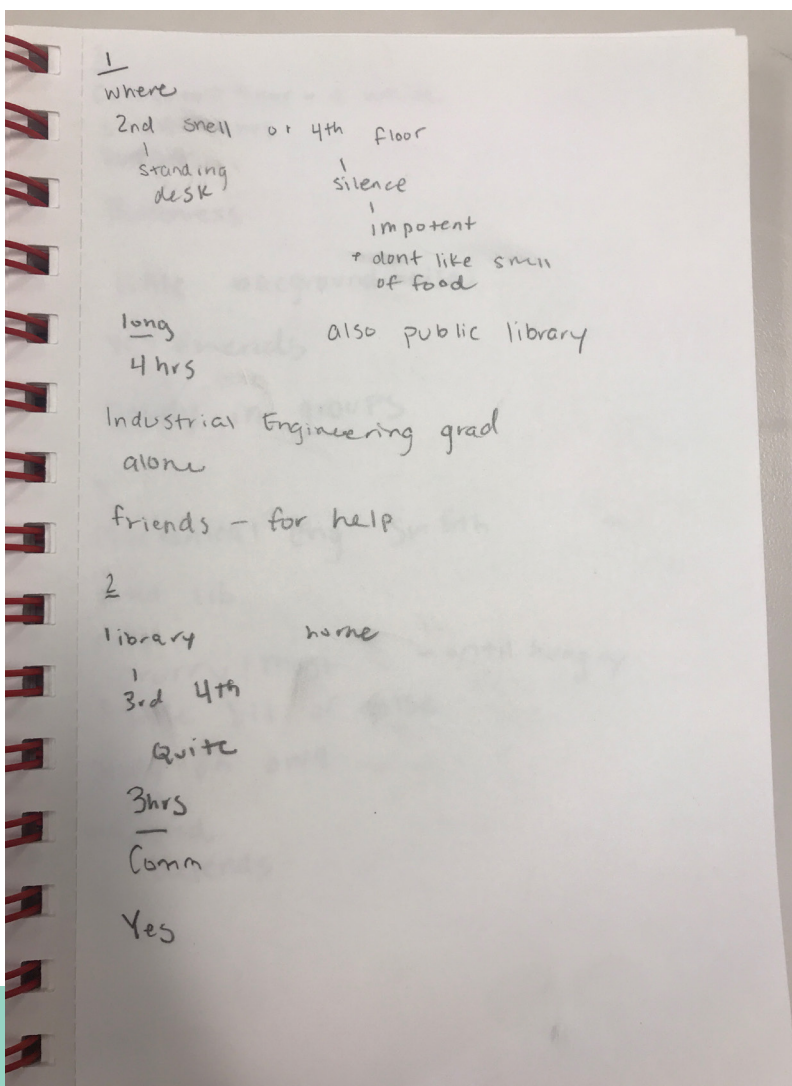 1
where
2nd snell or 4th floor
standing silence
desk
impotent
+ dont like smell
of food
long also public library
4 hrs
Industrial Engineering grad
alone
friends - for help
2
library home
3rd 4th
Quite
3hrs
Comm
Yes